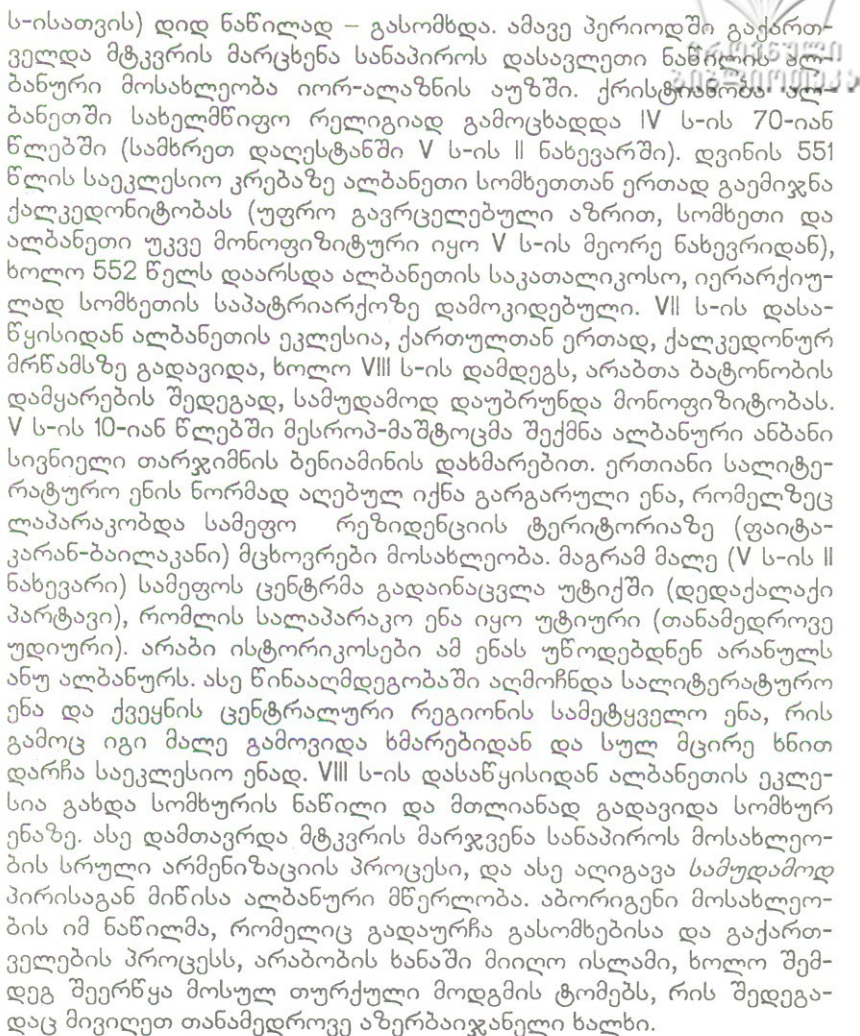 ს-ისათვის) დიდ ნაწილად – გასომხდა. ამავე პერიოდში გაქართ-
ველდა მტკვრის მარცხენა სანაპიროს დასავლეთი ნაწილის ალ-
ბანური მოსახლეობა იორ-ალაზნის აუზში. ქრისტიანობა ალ-
ბანეთში სახელმწიფო რელიგიად გამოცხადდა IV ს-ის 70-იან
წლებში (სამხრეთ დაღესტანში V ს-ის II ნახევარში). დვინის 551
წლის საეკლესიო კრებაზე ალბანეთი სომხეთთან ერთად გაემიჯნა
ქალკედონიტობას (უფრო გავრცელებული აზრით, სომხეთი და
ალბანეთი უკვე მონოფიზიტური იყო V ს-ის მეორე ნახევრიდან),
ხოლო 552 წელს დაარსდა ალბანეთის საკათალიკოსო, იერარქიუ-
ლად სომხეთის საპატრიარქოზე დამოკიდებული. VII ს-ის დასა-
წყისიდან ალბანეთის ეკლესია, ქართულთან ერთად, ქალკედონურ
მრწამსზე გადავიდა, ხოლო VIII ს-ის დამდეგს, არაბთა ბატონობის
დამყარების შედეგად, სამუდამოდ დაუბრუნდა მონოფიზიტობას.
V ს-ის 10-იან წლებში მესროპ-მაშტოცმა შექმნა ალბანური ანბანი
სივნიელი თარჯიმნის ბენიამინის დახმარებით. ერთიანი სალიტე-
რატურო ენის ნორმად აღებულ იქნა გარგარული ენა, რომელზეც
ლაპარაკობდა სამეფო რეზიდენციის ტერიტორიაზე (ფაიტა-
კარან-ბაილაკანი) მცხოვრები მოსახლეობა. მაგრამ მალე (V ს-ის II
ნახევარი) სამეფოს ცენტრმა გადაინაცვლა უტიქში (დედაქალაქი
პარტავი), რომლის სალაპარაკო ენა იყო უტიური (თანამედროვე
უდიური). არაბი ისტორიკოსები ამ ენას უწოდებდნენ არანულს
ანუ ალბანურს. ასე წინააღმდეგობაში აღმოჩნდა სალიტერატურო
ენა და ქვეყნის ცენტრალური რეგიონის სამეტყველო ენა, რის
გამოც იგი მალე გამოვიდა ხმარებიდან და სულ მცირე ხნით
დარჩა საეკლესიო ენად. VIII ს-ის დასაწყისიდან ალბანეთის ეკლე-
სია გახდა სომხურის ნაწილი და მთლიანად გადავიდა სომხურ
ენაზე. ასე დამთავრდა მტკვრის მარჯვენა სანაპიროს მოსახლეო-
ბის სრული არმენიზაციის პროცესი, და ასე აღიგავა სამუდამოდ
პირისაგან მიწისა ალბანური მწერლობა. აბორიგენი მოსახლეო-
ბის იმ ნაწილმა, რომელიც გადაურჩა გასომხებისა და გაქართ-
ველების პროცესს, არაბობის ხანაში მიიღო ისლამი, ხოლო შემ-
დეგ შეერწყა მოსულ თურქული მოდგმის ტომებს, რის შედეგა-
დაც მივიღეთ თანამედროვე აზერბაიჯანელი ხალხი.
ეროვნული
ბიბლიოთეკა